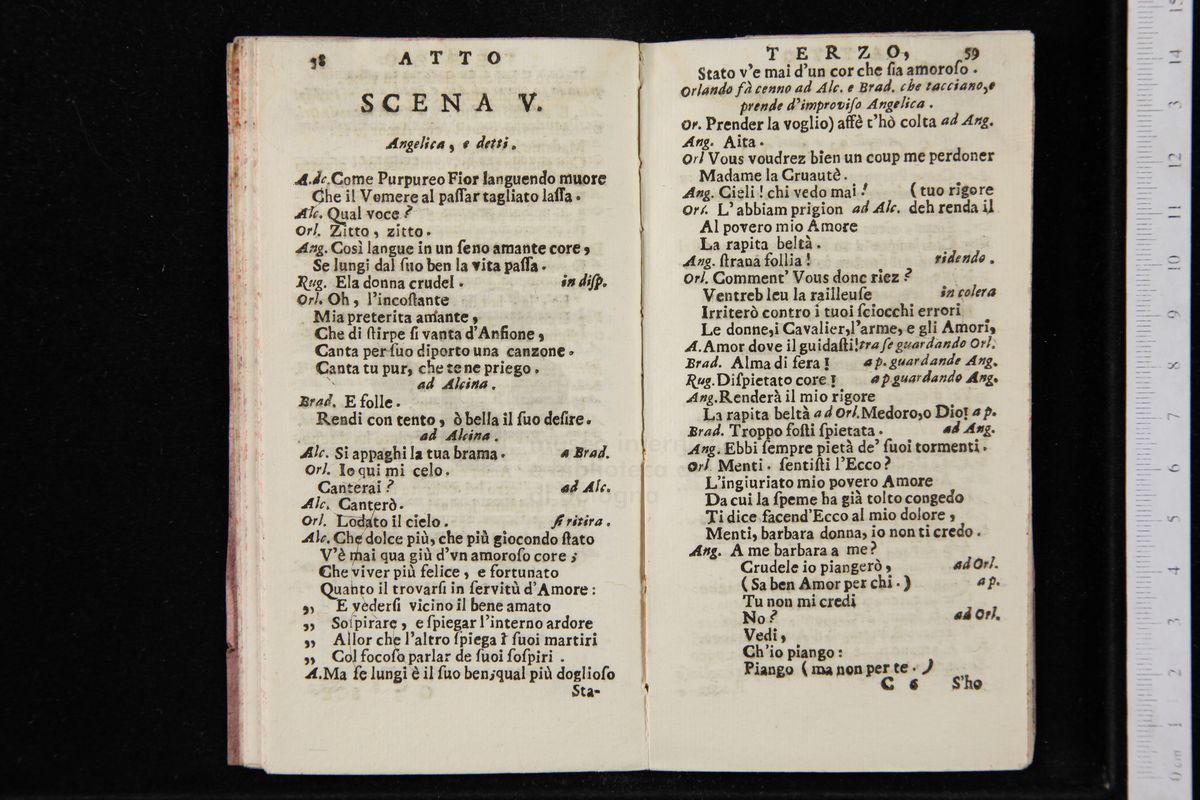 58 ATTO
SCENA V.
Angelica, e detti.
A.dc.Come Purpureo Fior languendo muore
Che il Vomere al paſſar tagliato laſſa.
Alc. Qual voce?
Orl. Zitto, zitto.
Ang. Così langue in un ſeno amante core,
Se lungi dal ſuo ben la vita paſſa.
Rug. Ela donna crudel. in diſp.
Orl. Oh, l'incoſtante
Mia preterita amante,
Che di ſtirpe ſi vanta d'Anfione,
Canta per ſuo diporto una canzone.
Canta tu pur, che te ne priego.
ad Alcina.
Brad. E folle.
Rendi contento, ò bella il ſuo deſire.
ad Alcina.
Alc. Si appaghi la tua brama. a Brad.
Orl. Io qui mi celo.
Canterai? ad Alc.
Alc. Canterò.
Orl. Lodato il cielo. ſi ritira.
Alc. Che dolce più, che più giocondo ſtato
V'è mai qua giù d'vn amoroſo core;
Che viver più felice, e fortunato
Quanto il trovarſi in ſervitù d'Amore:
„ E vederſi vicino il bene amato
„ Soſpirare, e ſpiegar l'interno ardore
„ Allor che l'altro ſpiega i ſuoi martiri
„ Col focoſo parlar de ſuoi ſoſpiri.
A.Ma ſe lungi è il ſuo ben,qual più doglioſo
Sta-
TERZO, 59
Stato v'e mai d'un cor che ſia amoroſo.
Orlando fà cenno ad Alc. e Brad. che tacciano,e
prende d'improviſo Angelica.
Or. Prender la voglio) affè t'hò colta ad Ang.
Ang. Aita.
Orl Vous voudrez bien un coup me perdoner
Madame la Cruautè.
Ang. Cieli! chi vedo mai! (tuo rigore
Orl. L'abbiam prigion ad Alc. deh renda il
Al povero mio Amore
La rapita beltà.
Ang. ſtrana follia! ridendo.
Orl. Comment' Vous donc riez?
Ventreb leu la railleuſe in colera
Irriterò contro i tuoi ſciocchi errori
Le donne,i Cavalier,l'arme, e gli Amori,
A.Amor dove il guidaſti!tra ſe guardando Orl.
Brad. Alma di fera! a p. guardande Ang.
Rug.Diſpietato core! a p guardando Ang.
Ang.Renderà il mio rigore
La rapita beltà ad Orl.Medoro,o Dio! a p.
Brad. Troppo foſti ſpietata. ad Ang.
Ang. Ebbi ſempre pietà de' ſuoi tormenti.
Orl. Menti. ſentiſti l'Ecco?
L'ingiuriato mio povero Amore
Da cui la ſpeme ha già tolto congedo
Ti dice facend'Ecco al mio dolore,
Menti, barbara donna, io non ti credo.
Ang. A me barbara a me?
Crudele io piangerò, ad Orl.
(Sa ben Amor per chi.) a p.
Tu non mi credi
No? ad Orl.
Vedi,
Ch'io piango:
Piango (ma non per te.)
C 6 S'ho